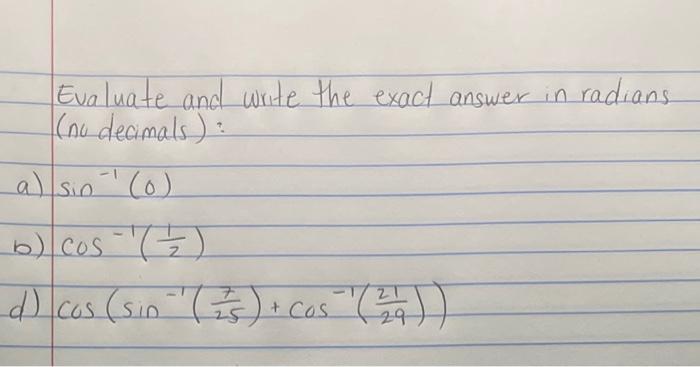 Evaluate and write the exact answer in radians
(no decimals):
a) sin⁻¹(0)
b) cos⁻¹(1/2)
d) cos(sin⁻¹(7/25) + cos⁻¹(21/29))